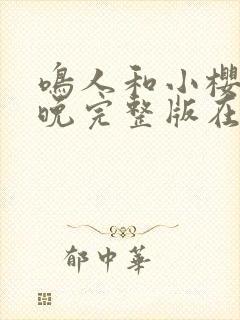 鳴人和小櫻
晚完整版在
郁中華